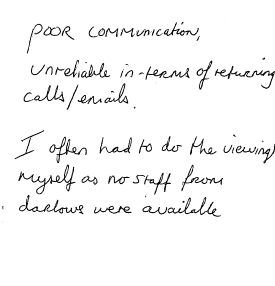 POOR COMMUNICATION,
Unreliable in-terms of returning
calls/emails.
I often had to do the viewings
myself as no staff from
darlows were available